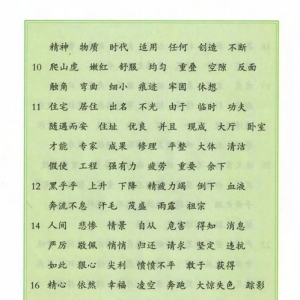 精神 物质 时代 适用 任何 创造 不断
10 爬山虎 嫩红 舒服 均匀 重叠 空隙 反面
触角 弯曲 细小 痕迹 牢固 休想
11 住宅 居住 出名 不光 由于 临时 功夫
随遇而安 住址 优良 并且 现成 大厅 卧室
才能 专家 成果 修理 平整 大体 清洁
假使 工程 强有力 疲劳 重要 余下
12 黑乎乎 上升 下降 精疲力竭 倒下 血液
奔流不息 汗毛 茂盛 雨露 祖宗
14 人间 悲惨 情景 自从 危害 得知 消息
严厉 敬佩 悄悄 归还 请求 坚定 连抗
如此 狠心 尖利 愤愤不平 敢于 获得
16 精心 依然 幸福 凌空 奔跑 大惊失色 踪影